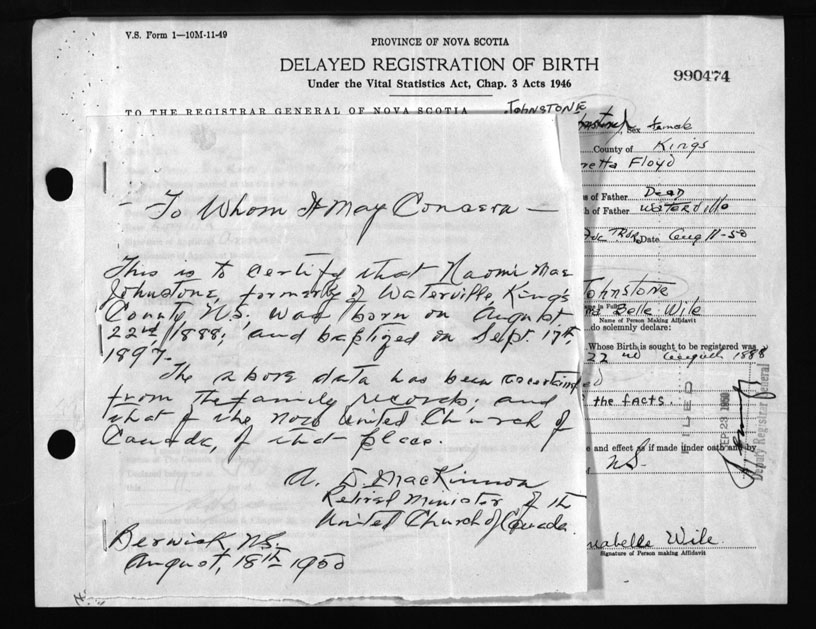 V.S. Form 1—10M-11-49
PROVINCE OF NOVA SCOTIA
DELAYED REGISTRATION OF BIRTH
Under the Vital Statistics Act, Chap. 3 Acts 1946
990474
TO THE REGISTRAR GENERAL OF NOVA SCOTIA
JOHNSTONE
Sex female
County of Kings
Floyd
of Father Dead
of Father Waterville
Date Aug 11-50
— To Whom It May Concern —
This is to certify that Naomi Mae
Johnstone, formerly of Waterville, King's
County N.S. was born on August
22nd, 1888, and baptized on Sept. 17th,
1897.
The above data has been
from the family records, and
that of the now United Church of
Canada, of that place.
A. D. MacKinnon
Retired Minister of the
United Church of Canada.
Berwick N.S.
August, 18th 1950
Johnstone
Belle Wile
Name of Person Making Affidavit
do solemnly declare:
Whose Birth is sought to be registered was
22nd August 1888
the facts.
FILED
SEP 23 1950
Deputy Registrar General
and effect as if made under oath and by
N.S.
Wile
Signature of Person making Affidavit